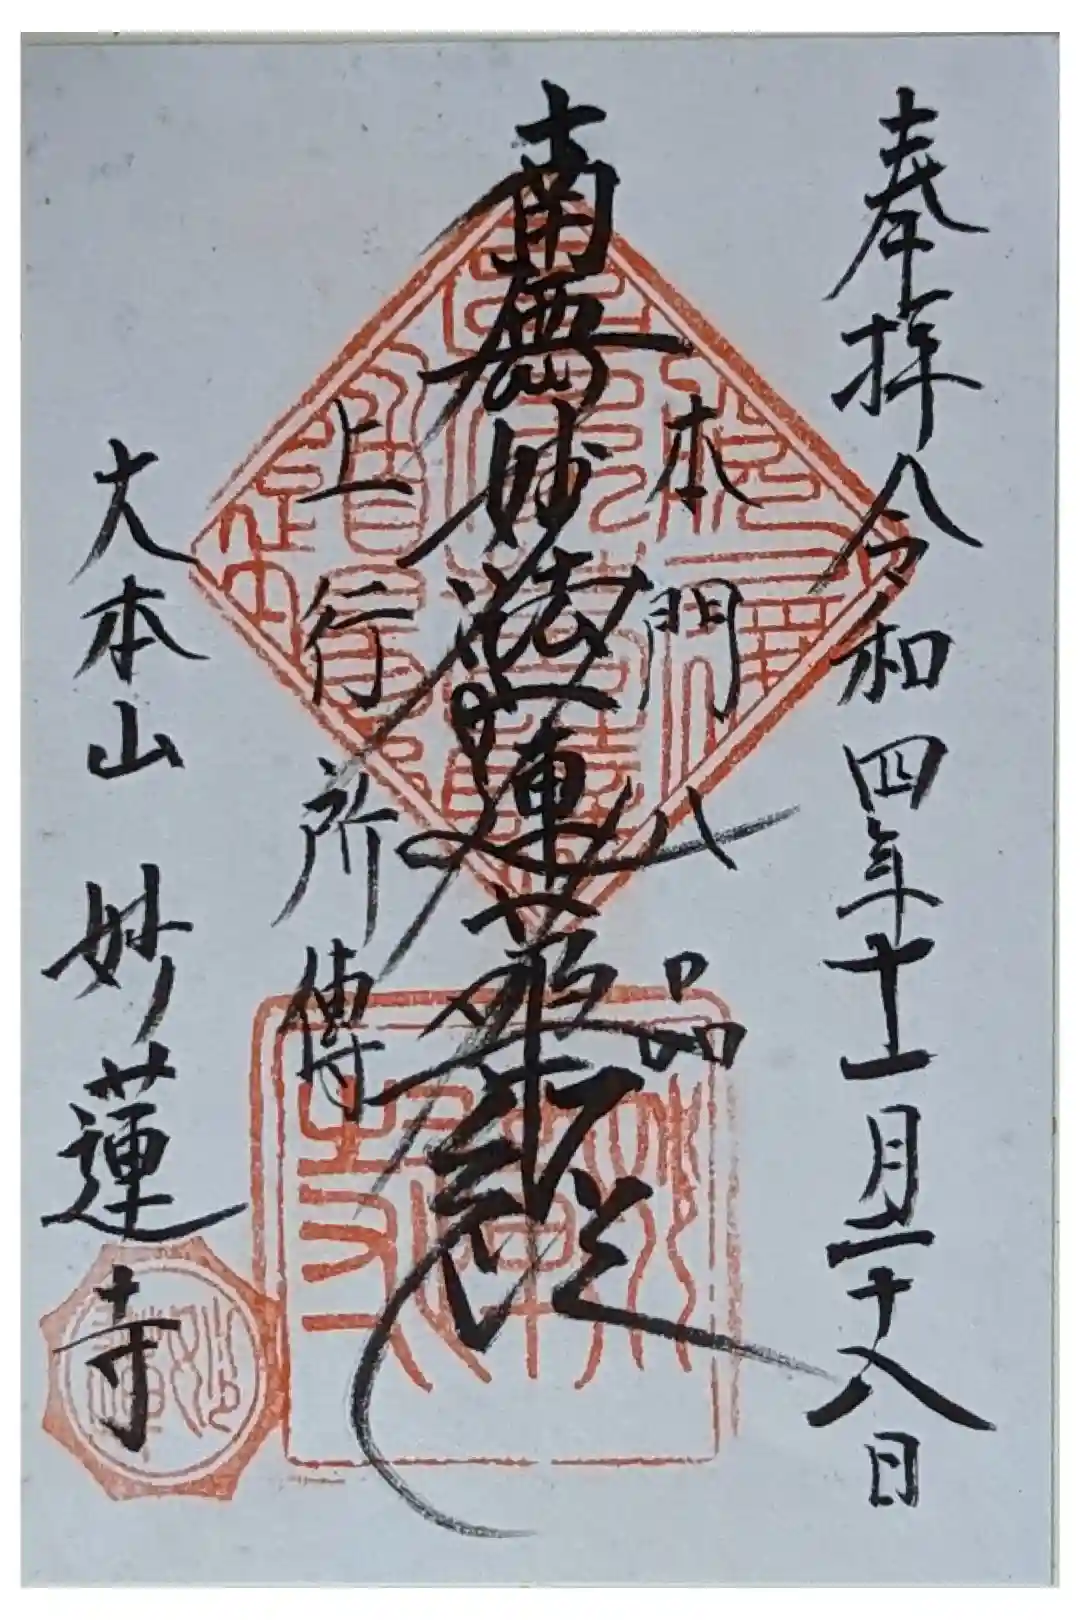 奉拝 令和四年十一月二十八日
本門八品
南無妙法蓮華經
上行所傳
大本山 妙蓮寺